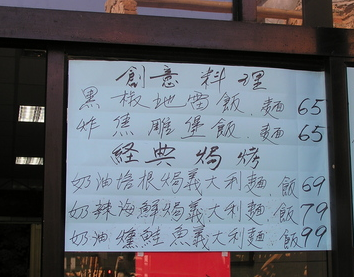 創意料理
黑椒地雷飯.麵 65
炸焦雕堡飯.麵 65
經典焗烤
奶油培根焗義大利麵.飯 69
奶辣海鮮焗義大利麵.飯 79
奶油燻鮭魚義大利麵.飯 99